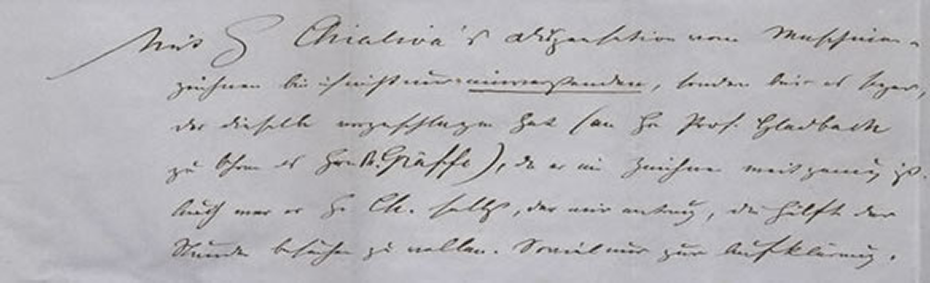 Mit H Chialiva's Dispensation vom Maschinen-
zeichnen bin ich nicht nur einverstanden, sondern bin es sogar,
der dieselbe vorgeschlagen hat (an H Prof. Gladbach
zu Gräffe), da er im Zeichnen weit genug ist.
Auch war es H. Ch. selbst, der mir antrug, die Hälfte der
Stunden besuchen zu wollen. Soviel nur zur Aufklärung.